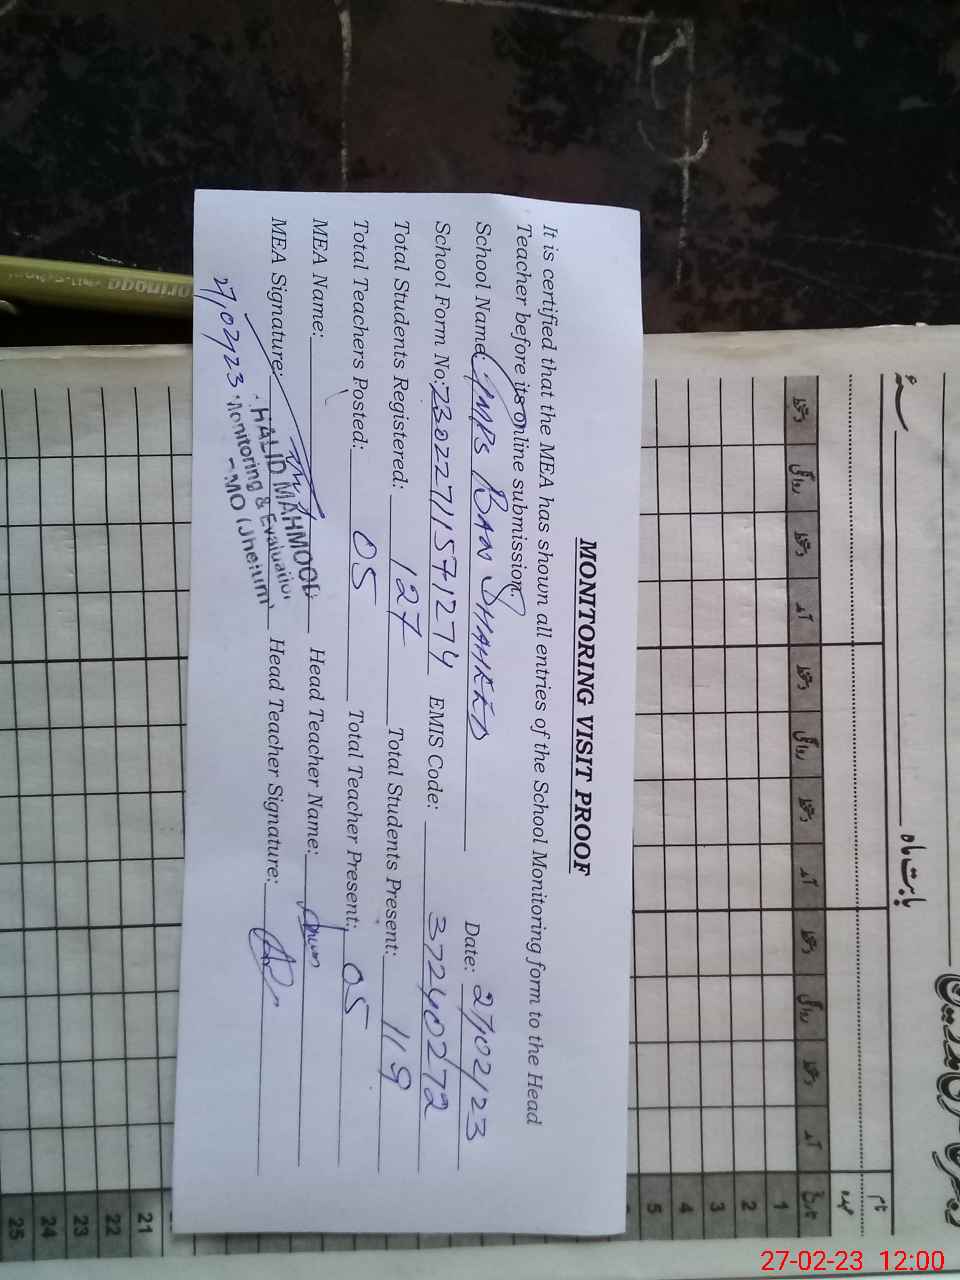 MONITORING VISIT PROOF
It is certified that the MEA has shown all entries of the School Monitoring form to the Head
Teacher before its online submission.
School Name: GMPS BAN SHAHEED Date: 27/02/23
School Form No: 23022711571274 EMIS Code: 37240272
Total Students Registered: 127 Total Students Present: 119
Total Teachers Posted: 05 Total Teacher Present: 05
MEA Name: Head Teacher Name:
MEA Signature: Head Teacher Signature:
HALID MAHMOOD
27/02/23 Monitoring & Evaluation
MO (Jhelum)
بابت ماہ
نام
عہدہ
تاریخ آمد دستخط روانگی دستخط آمد دستخط روانگی دستخط آمد دستخط روانگی دستخط
1
2
3
4
5
21
22
23
24
25
27-02-23 12:00